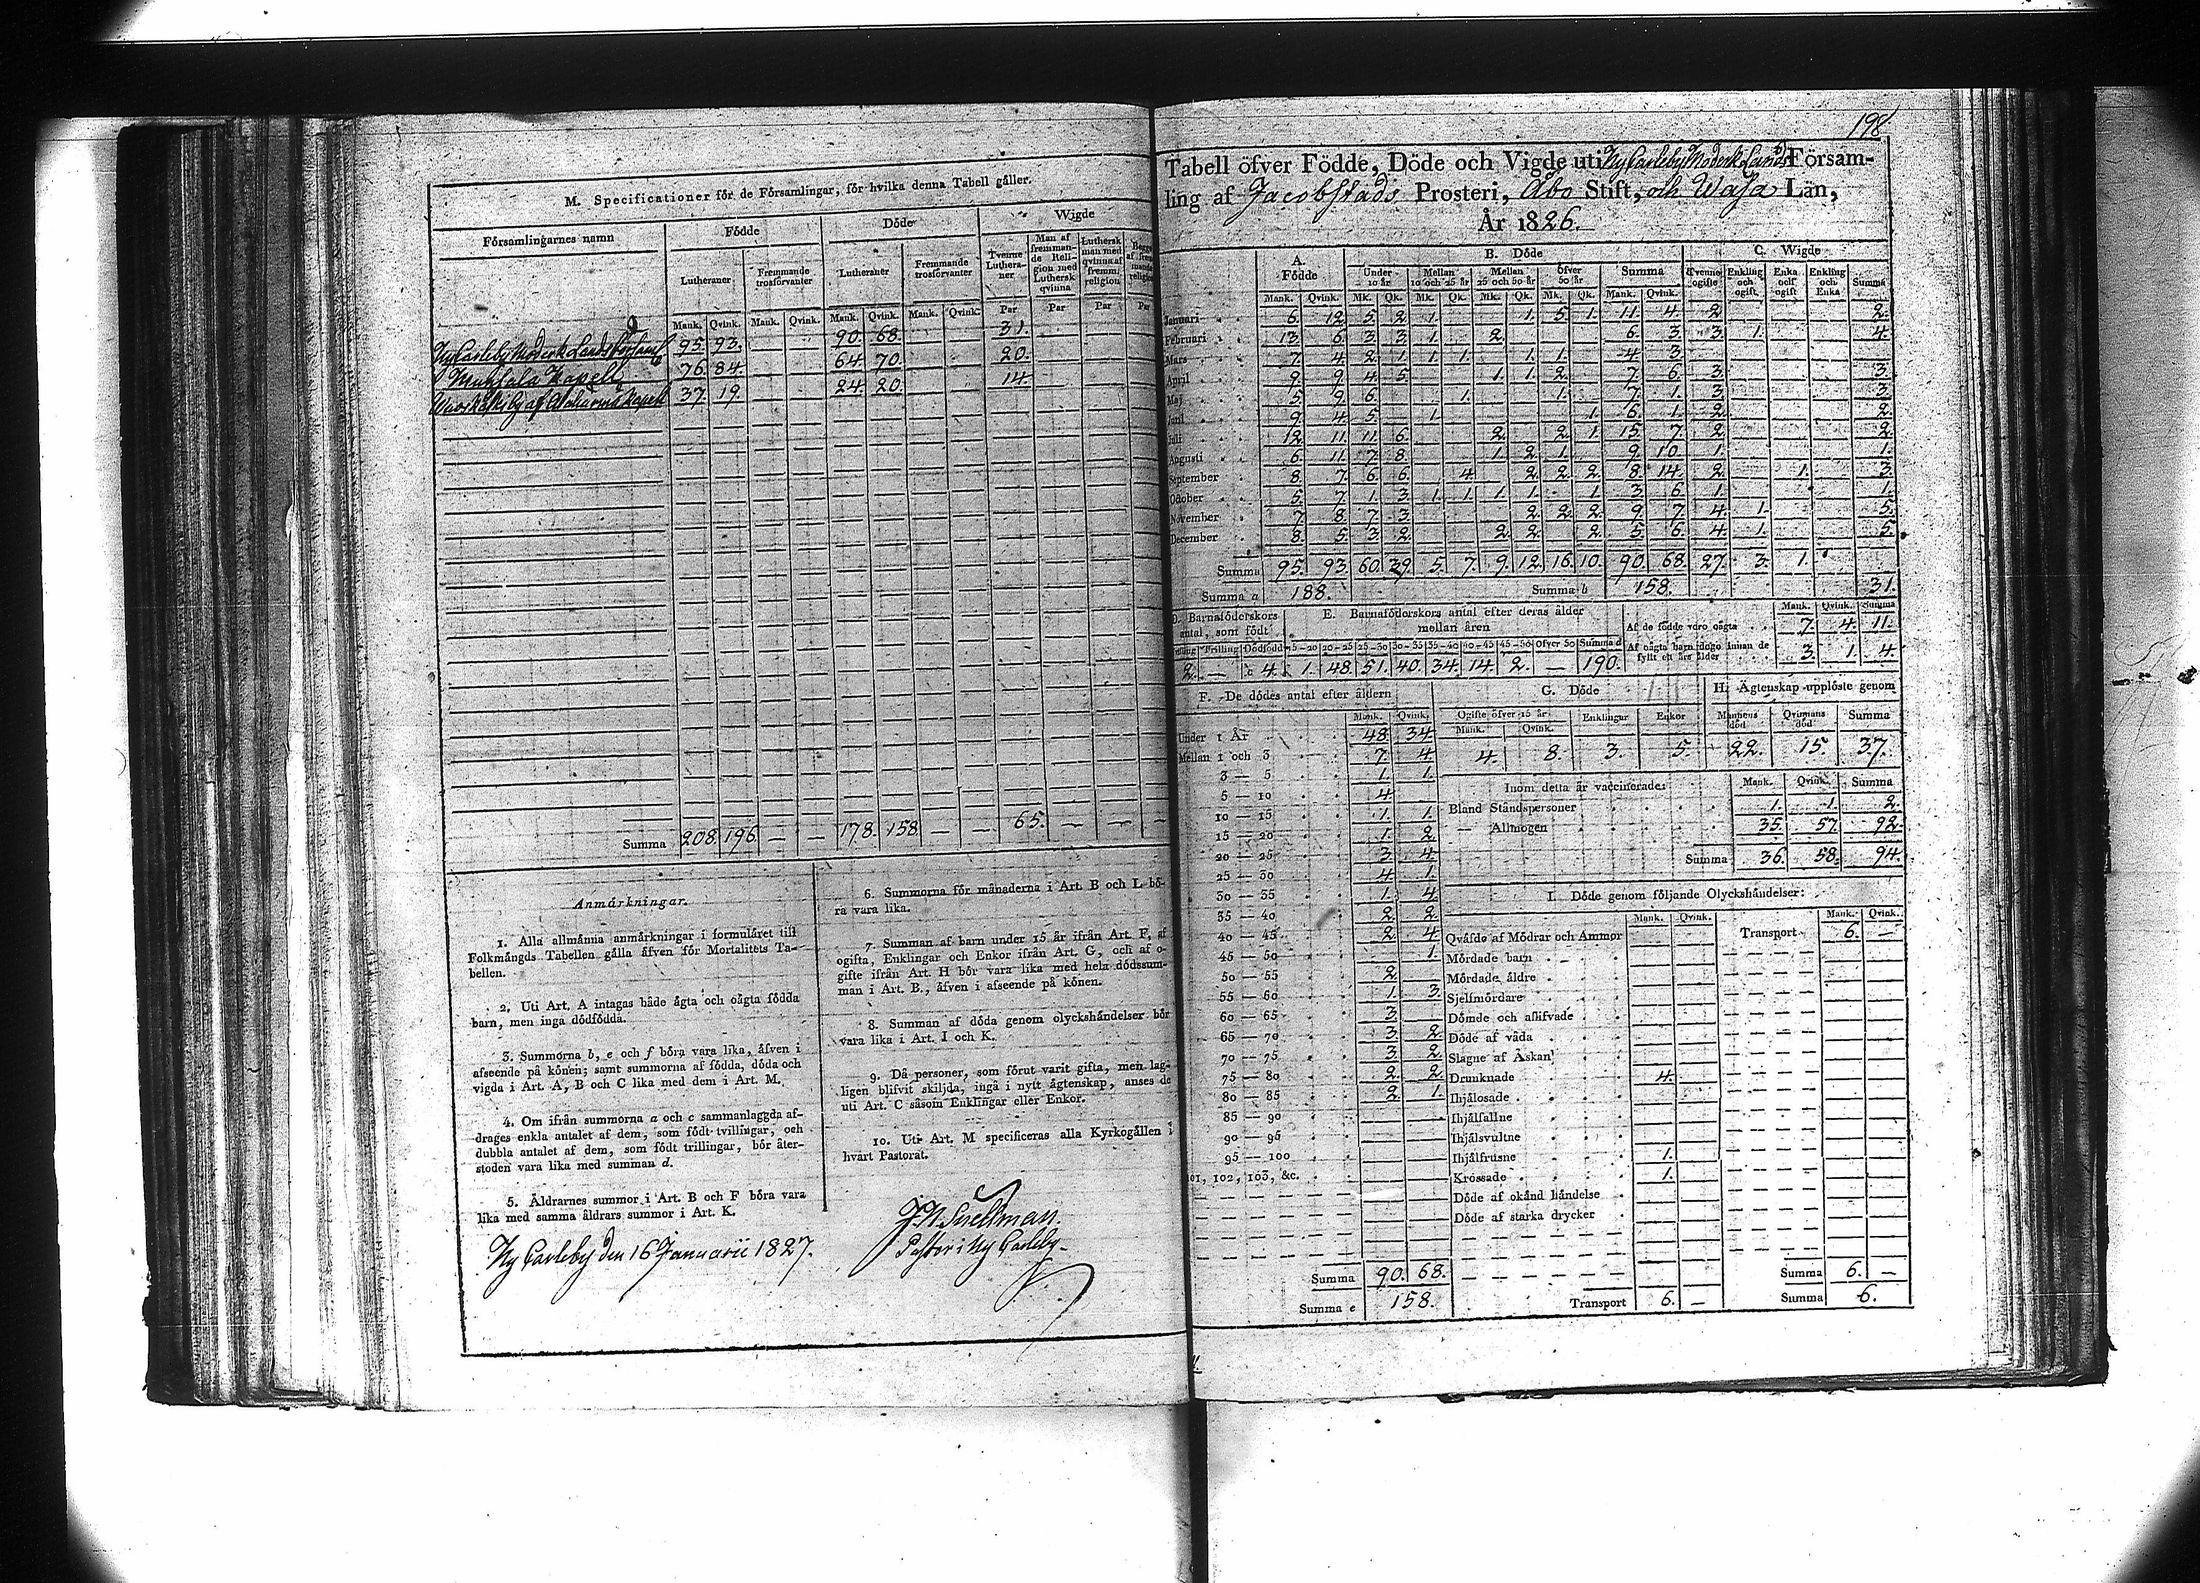 M. Specificationer för de Församlingar, för hvilka denna Tabell gäller.
Församlingarnes namn | Födde | Döde | Wigde
Lutheraner | Fremmande trosförvanter | Lutheraner | Fremmande trosförvanter | Tvenne Lutheraner | Man af fremmande Religion med Luthersk qvinna | Luthersk man med qvinna af fremm. religion
Mank. Qvink. Mank. Qvink. Mank. Qvink. Mank. Qvink. Par Par Par Par
Ny Carleby Moderk Lands 95. 93. 90. 68. 31.
Kapell 76. 84. 64. 70. 20.
Kapell 37. 19. 24. 20. 14.
Summa 208. 196. — — 178. 158 — — 65. — — —
Anmärkningar.
1. Alla allmänna anmärkningar i formuläret till
Folkmängds Tabellen gälla äfven för Mortalitets Ta-
bellen.
2. Uti Art. A intagas både ägta och oägta födda
barn, men inga dödfödda.
3. Summorna b, e och f böra vara lika, äfven i
afseende på könen; samt summorna af födda, döda och
vigda i Art. A, B och C lika med dem i Art. M.
4. Om ifrån summorna a och c sammanlaggda af-
drages enkla antalet af dem, som födt tvillingar, och
dubbla antalet af dem, som födt trillingar, bör åter-
stoden vara lika med summan d.
5. Åldrarnes summor i Art. B och F böra vara
lika med samma åldrars summor i Art. K.
Ny Carleby den 16 Januarii 1827.
6. Summorna för månaderna i Art. B och L bö-
ra vara lika.
7. Summan af barn under 15 år ifrån Art. F, af
ogifta, Enklingar och Enkor ifrån Art. G, och af o-
gifte ifrån Art. H bör vara lika med hela dödssum-
man i Art. B., äfven i afseende på könen.
8. Summan af döda genom olyckshändelser bör
vara lika i Art. I och K.
9. Då personer, som förut varit gifta, men lag-
ligen blifvit skiljda, ingå i nytt ägtenskap, anses de
uti Art. C såsom Enklingar eller Enkor.
10. Uti Art. M specificeras alla Kyrkogällen i
hvart Pastorat.
J. N. Snellman.
Pastor i Ny Carleby.
198
Tabell öfver Födde, Döde och Vigde uti Ny Carleby Moderk Lands Församling
af Jacobstads Prosteri, Åbo Stift, och Wasa Län,
År 1826.
A. Födde | B. Döde | C. Wigde
Under 10 år | Mellan 10 och 25 år | Mellan 25 och 50 år | öfver 50 år | Summa | Tvenne ogifte | Enkling och ogift. | Enka och ogift | Enkling och Enka | Summa
Mank. Qvink. Mk. Qk. Mk. Qk. Mk. Qk. Mk. Qk. Mank. Qvink.
Januari 6. 12. 5. 2. 1. 1. 5. 1. 11. 4. 2. 2.
Februari 13. 6. 3. 3. 1. 2. 6. 3. 3. 1. 4.
Mars 7. 4. 2. 1. 1. 1. 1. 1. 4. 3.
April 9. 9. 4. 5. 1. 1. 2. 7. 6. 3. 3.
Maj 5. 9. 6. 1. 1. 7. 1. 3. 3.
Juni 9. 4. 5. 1. 1. 6. 1. 2. 2.
Juli 12. 11. 11. 6. 2. 2. 1. 15. 7. 2. 2.
Augusti 6. 11. 7. 8. 1. 2. 1. 9. 10. 1. 1.
September 8. 7. 6. 6. 4. 2. 2. 2. 8. 14. 2. 1. 3.
October 5. 7. 1. 3. 1. 1. 1. 1. 1. 3. 6. 1. 1.
November 7. 8. 7. 3. 2. 2. 2. 9. 7. 4. 1. 5.
December 8. 5. 3. 2. 2. 2. 2. 5. 6. 4. 1. 5.
Summa 95. 93. 60. 29. 5. 7. 9. 12. 16. 10. 90. 68. 27. 3. 1.
Summa a 188. Summa b 158. 31.
D. Barnaföderskors antal, som födt | E. Barnaföderskors antal efter deras ålder mellan åren
Trilling Dödfödd 15–20 20–25 25–30 30–35 35–40 40–45 45–50 öfver 50 Summa d
2. — 4. 1. 48. 51. 40. 34. 14. 2. — 190.
Mank. Qvink. Summa
Af de födde voro oägta 7. 4. 11.
Af oägta barn dogo innan de fyllt ett års ålder 3. 1. 4.
F. De dödes antal efter åldern
Mank. Qvink.
Under 1 År 48 34.
Mellan 1 och 3 7. 4.
3 — 5 1. 1.
5 — 10 4.
10 — 15 1. 1.
15 — 20 1. 2.
20 — 25 3. 4.
25 — 30 4. 1.
30 — 35 1. 4.
35 — 40 2. 2.
40 — 45 2. 4.
45 — 50 1.
50 — 55 2.
55 — 60 1. 3.
60 — 65 3.
65 — 70 3. 2.
70 — 75 3. 2.
75 — 80 2. 2.
80 — 85 2. 1.
85 — 90
90 — 95
95 — 100
101, 102, 103, &c.
Summa 90. 68.
Summa e 158.
G. Döde
Ogifte öfver 15 år Enklingar Enkor
Mank. Qvink.
4. 8. 3. 5.
H. Ägtenskap upplöste genom
Mannens död Qvinnans död Summa
22. 15. 37.
Inom detta år vaccinerade: Mank. Qvink. Summa
Bland Ståndspersoner 1. 1. 2.
— Allmogen 35. 57. 92.
Summa 36. 58. 94.
I. Döde genom följande Olyckshändelser:
Mank. Qvink. Mank. Qvink.
Qväfde af Mödrar och Ammor Transport 6. —
Mördade barn
Mördade äldre
Sjelfmördare
Dömde och aflifvade
Döde af våda
Slagne af Åskan
Drunknade 4.
Ihjälosade
Ihjälfallne
Ihjälsvultne
Ihjälfrusne 1.
Krossade 1.
Döde af okänd händelse
Döde af starka drycker
Summa 6. —
Transport 6. — Summa 6.